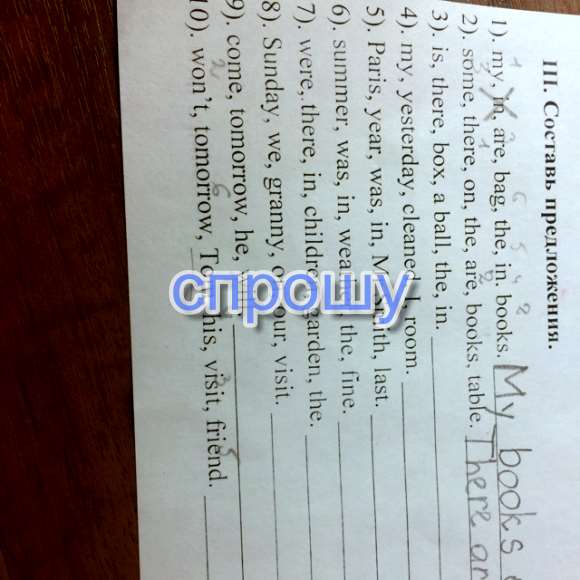 III. Составь предложения.
1). my, in, are, bag, the, in. books. My books
2). some, there, on, the, are, books, table. There ar
3). is, there, box, a ball, the, in.
4). my, yesterday, cleaned, I, room.
5). Paris, year, was, in, Mr. Smith, last.
6). summer, was, in, weather, the, fine.
7). were, there, in, children, garden, the.
8). Sunday, we, granny, our, visit.
9). come, tomorrow, he,
10). won't, tomorrow, Tom, his, visit, friend.
спрошу